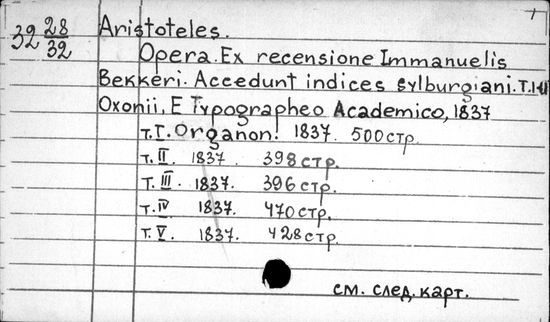 32 28/32 Aristoteles.
Opera. Ex recensione Immanuelis
Bekkeri. Accedunt indices sylburgiani. T.I-
Oxonii, E Typographeo Academico, 1837
т. I. Organon. 1837. 500 стр.
т. II. 1837. 398 стр.
т. III. 1837. 396 стр.
т. IV 1837. 470 стр.
т. V. 1837. 428 стр.
см. след. карт.